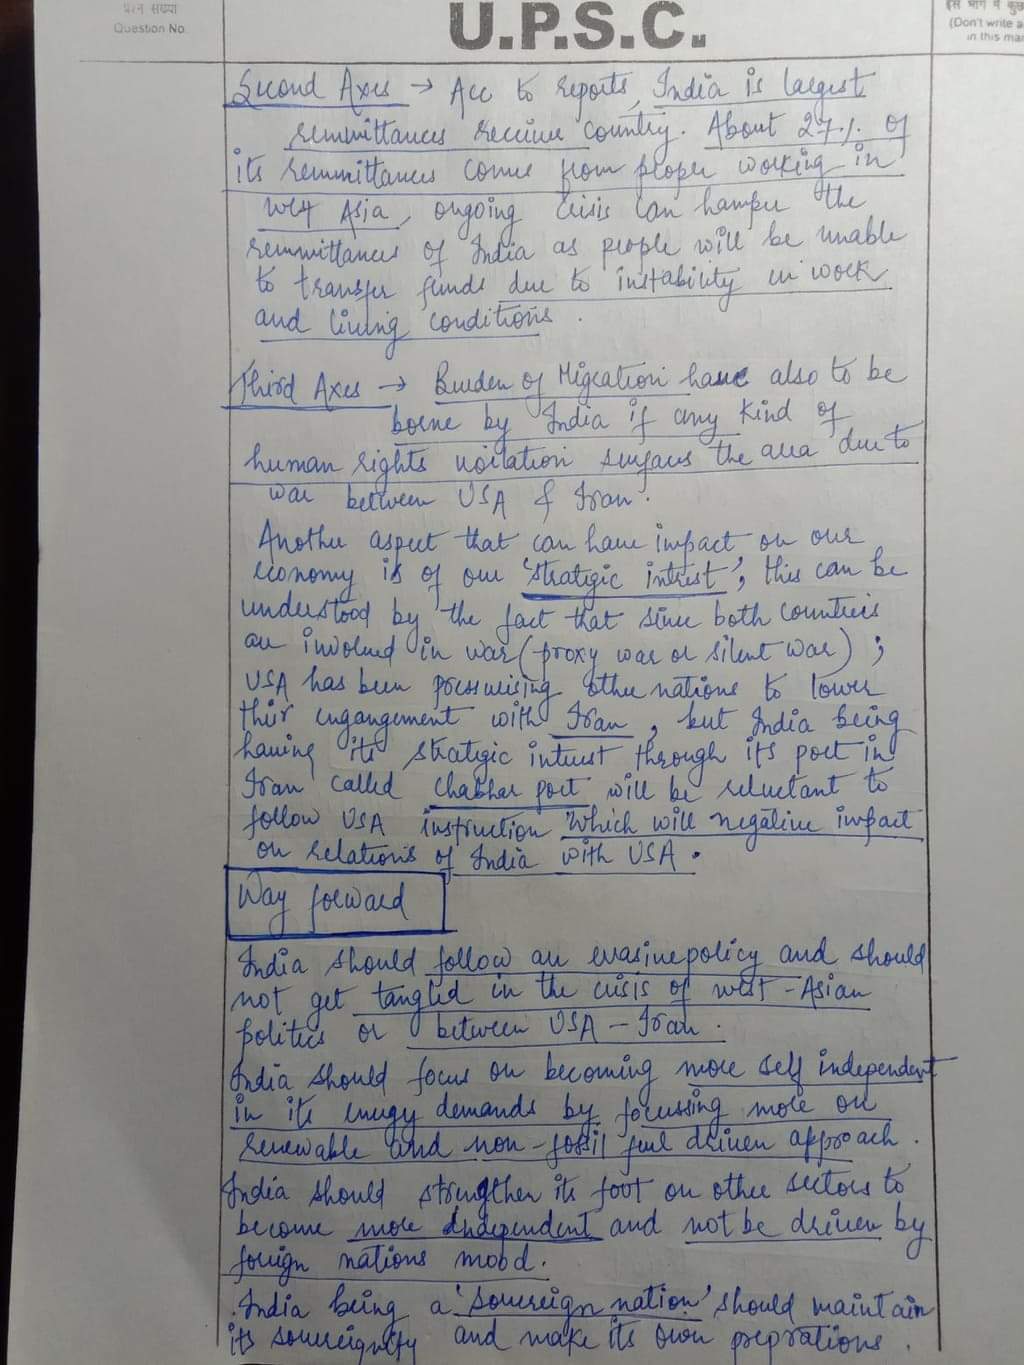 प्रश्न संख्या
Question No.
U.P.S.C.
(Don't write a
in this mar
Second Axes → Acc to reports, India is largest
remmittances receive country. About 27% of
its remmittances come from people working in
West Asia, ongoing crisis can hamper the
remmittances of India as people will be unable
to transfer funds due to instability in work
and living conditions.
Third Axes → Burden of Migration have also to be
borne by India if any kind of
human rights voilation surfaces the area due to
war between USA & Iran.
Another aspect that can have impact on our
economy is of our 'strategic intrest', this can be
understood by the fact that since both countries
are involved in war (proxy war or silent war);
USA has been pressurising other nations to lower
their engangement with Iran, but India being
having its strategic interest through its port in
Iran called Chabhar port will be reluctant to
follow USA instruction which will negative impact
on relations of India with USA.
Way forward
India should follow an evasine policy and should
not get tangled in the crisis of west-Asian
politics or between USA - Iran.
India should focus on becoming more self independent
in its enargy demands by focussing more on
renewable and non-fossil fuel driven approach.
India should strengthen its foot on other sectors to
become more independent and not be driven by
foreign nations mood.
India being a 'sovereign nation' should maintain
its sovereignity and make its own preprations.